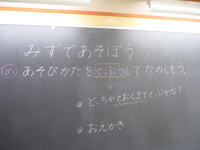 みずであそぼう
め あそびかたをくふうしてたのしもう。
どっちがとおくまでとぶかな?
おえかき